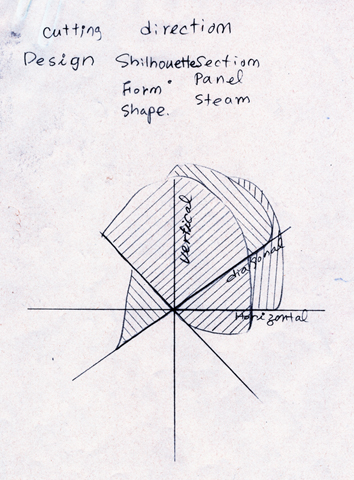 cutting direction
Design Shilhouette Section
Form Panel
Shape. Steam
vertical
diagonal
Horizontal